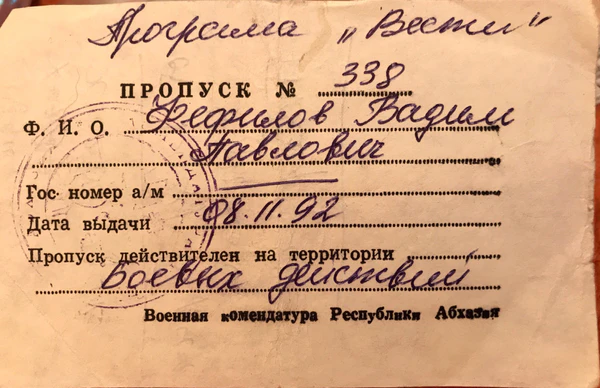 Программа „Вести"
ПРОПУСК № 338
Ф. И. О. Фефилов Вадим
Павлович
Гос номер а/м
Дата выдачи 08.11.92
Пропуск действителен на территории
боевых действий
Военная комендатура Республики Абхазия